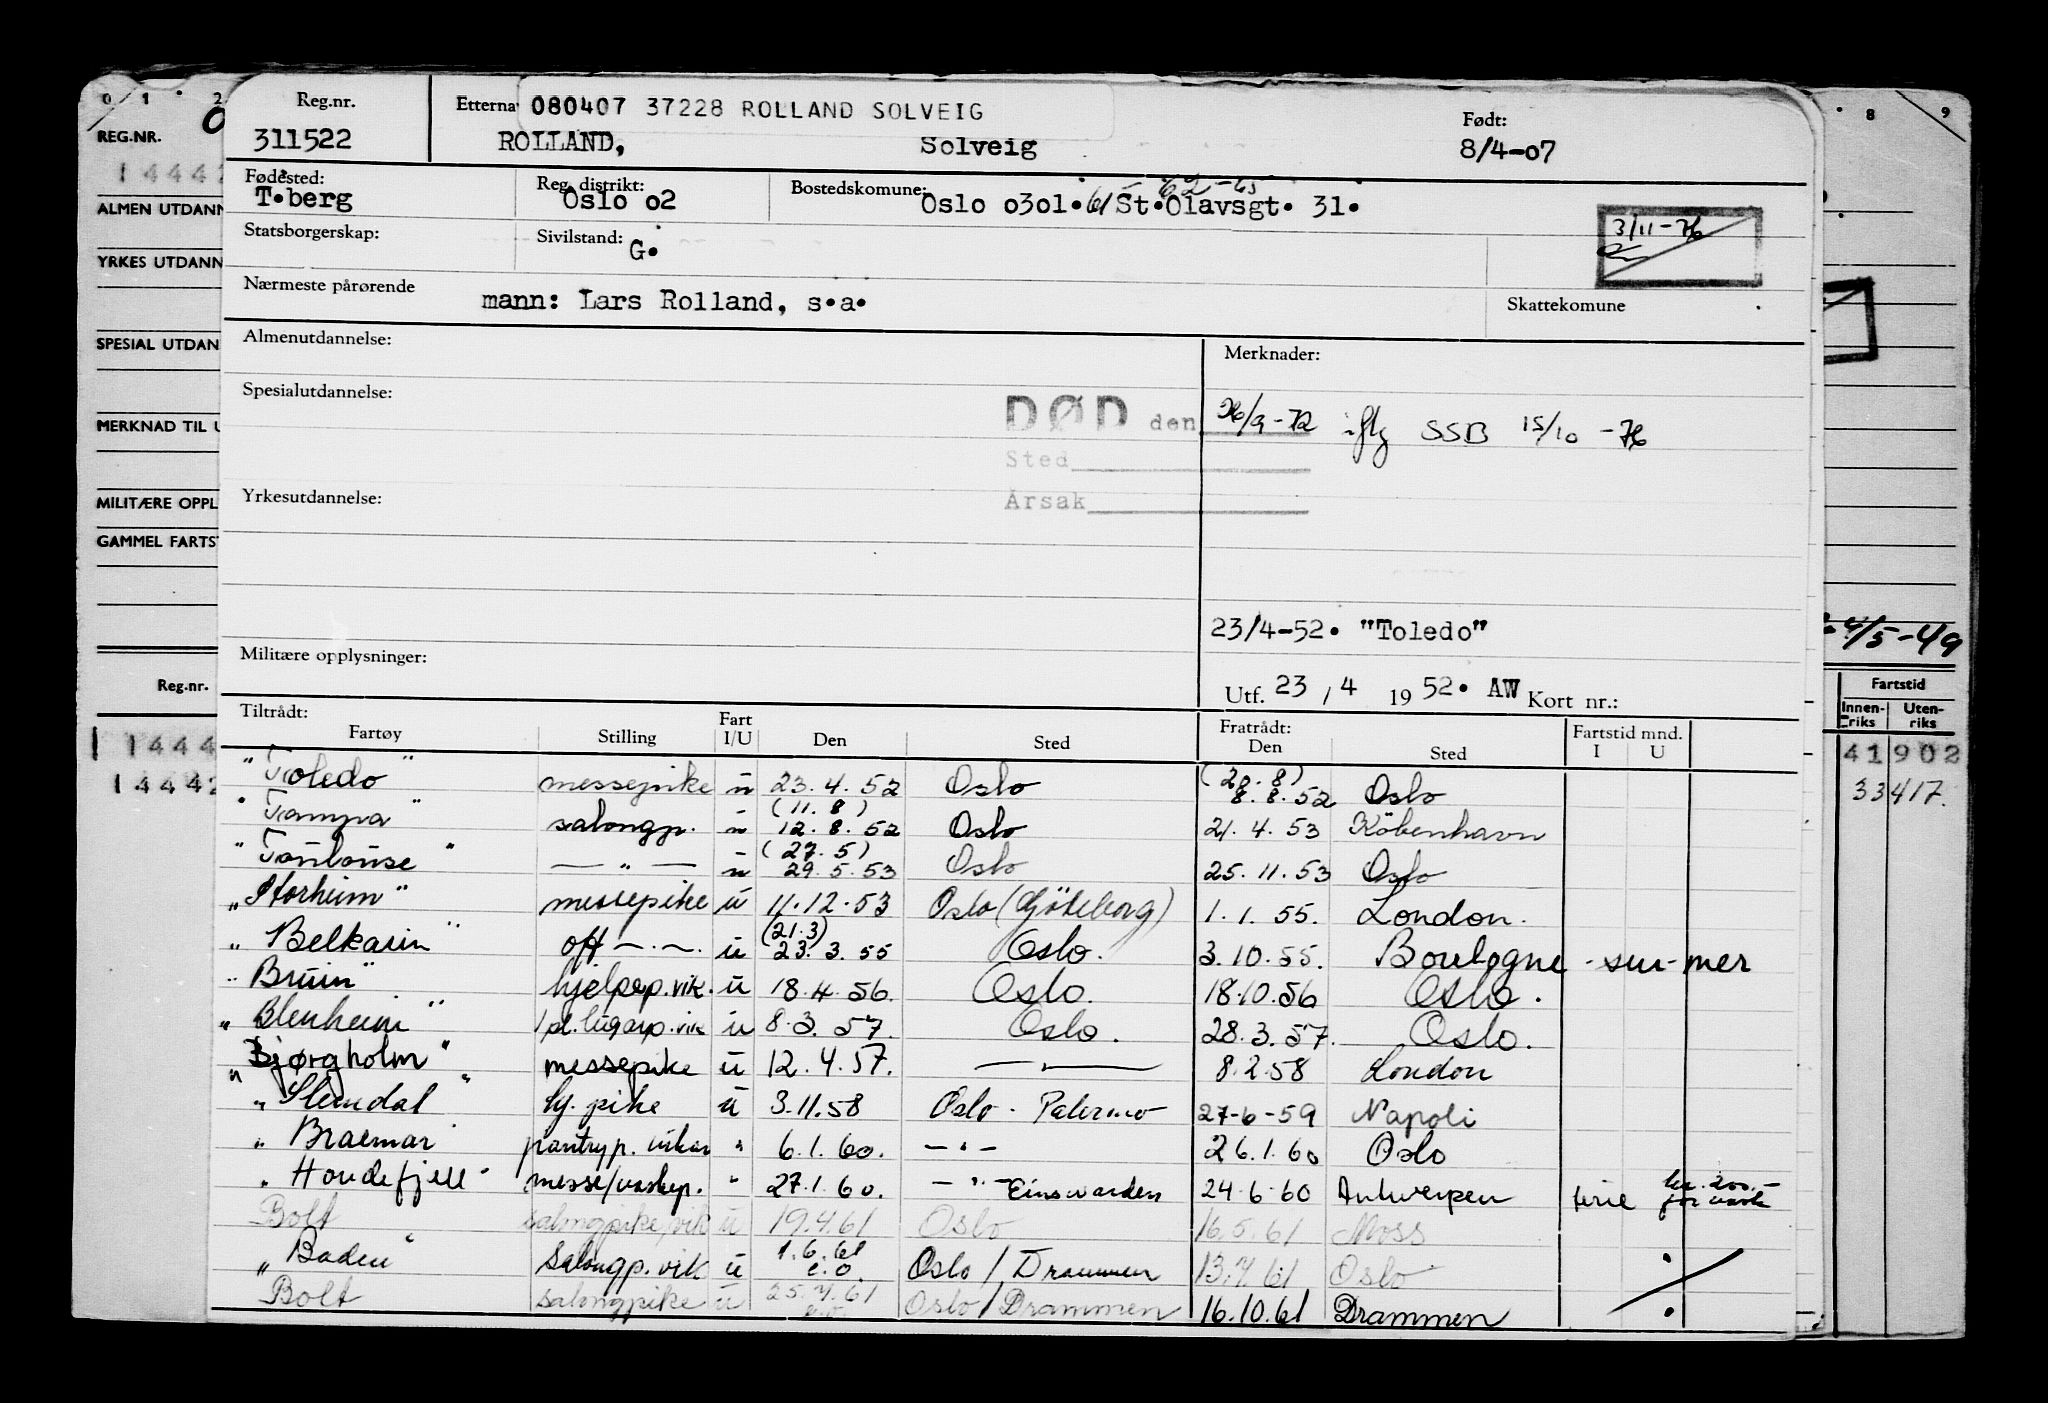 0 1 2
REG.NR.
14442
ALMEN UTDANN
YRKES UTDANN
SPESIAL UTDAN
MERKNAD TIL U
MILITÆRE OPPL
GAMMEL FARTST
Reg.nr.
1 1444
14442
8 9
4/5-49
Fartstid
Innen-riks Uten-riks
41902
33417.
Reg.nr. Etterna 080407 37228 ROLLAND SOLVEIG Født:
311522 ROLLAND, Solveig 8/4-07
Fødested: Reg. distrikt: Bostedskomune: 62-65
T.berg Oslo o2 Oslo o3o1. 61 St.Olavsgt. 31.
Statsborgerskap: Sivilstand: G. 3/11-76
Nærmeste pårørende mann: Lars Rolland, s.a. Skattekomune
Almenutdannelse: Merknader:
Spesialutdannelse: DØD den 26/9-72 iflg SSB 15/10-76
Sted
Yrkesutdannelse: Årsak
23/4-52. "Toledo"
Militære opplysninger: Utf. 23/4 1952. AW Kort nr.:
Tiltrådt: Fart Fratrådt: Fartstid mnd.
Fartøy Stilling I/U Den Sted Den Sted I U
"Toledo" messepike u 23.4.52 Oslo (20.8) 8.8.52 Oslo
"Tampa" salongp. u (11.8) 12.8.52 Oslo 21.4.53 Köbenhavn
"Toulouse" — " — u (27.5) 29.5.53 Oslo 25.11.53 Oslo
"Storheim" messepike u 11.12.53 Oslo (Göteborg) 1.1.55. London.
"Belkarin" off — . — . u (21.3) 23.3.55 Oslo. 3.10.55. Boulogne-sur-mer
"Bruin" hjelpep.vik. u 18.4.56. Oslo. 18.10.56 Oslo.
"Blenheim" pl.lugarp.vik u 8.3.57. Oslo. 28.3.57. Oslo.
"Bjørgholm" messepike u 12.4.57. — " — 8.2.58 London
"Slemdal" hj. pike u 3.11.58 Oslo - Palermo 27-6-59 Napoli
"Braemar" pantryp. vikar " 6.1.60. — " — 26.1.60 Oslo
"Hondefjell" messe/vaskep. " 27.1.60. — " — Einswarden 24.6.60 Antwerpen kr. 200.-
Bolt salongpike,vik u 19.4.61 Oslo 16.5.61 Moss
"Baden" salongp.vik u 1.6.61 e.o. Oslo/Drammen 13.7.61 Oslo
Bolt salongpike u 25.7.61 e.o. Oslo/Drammen 16.10.61 Drammen